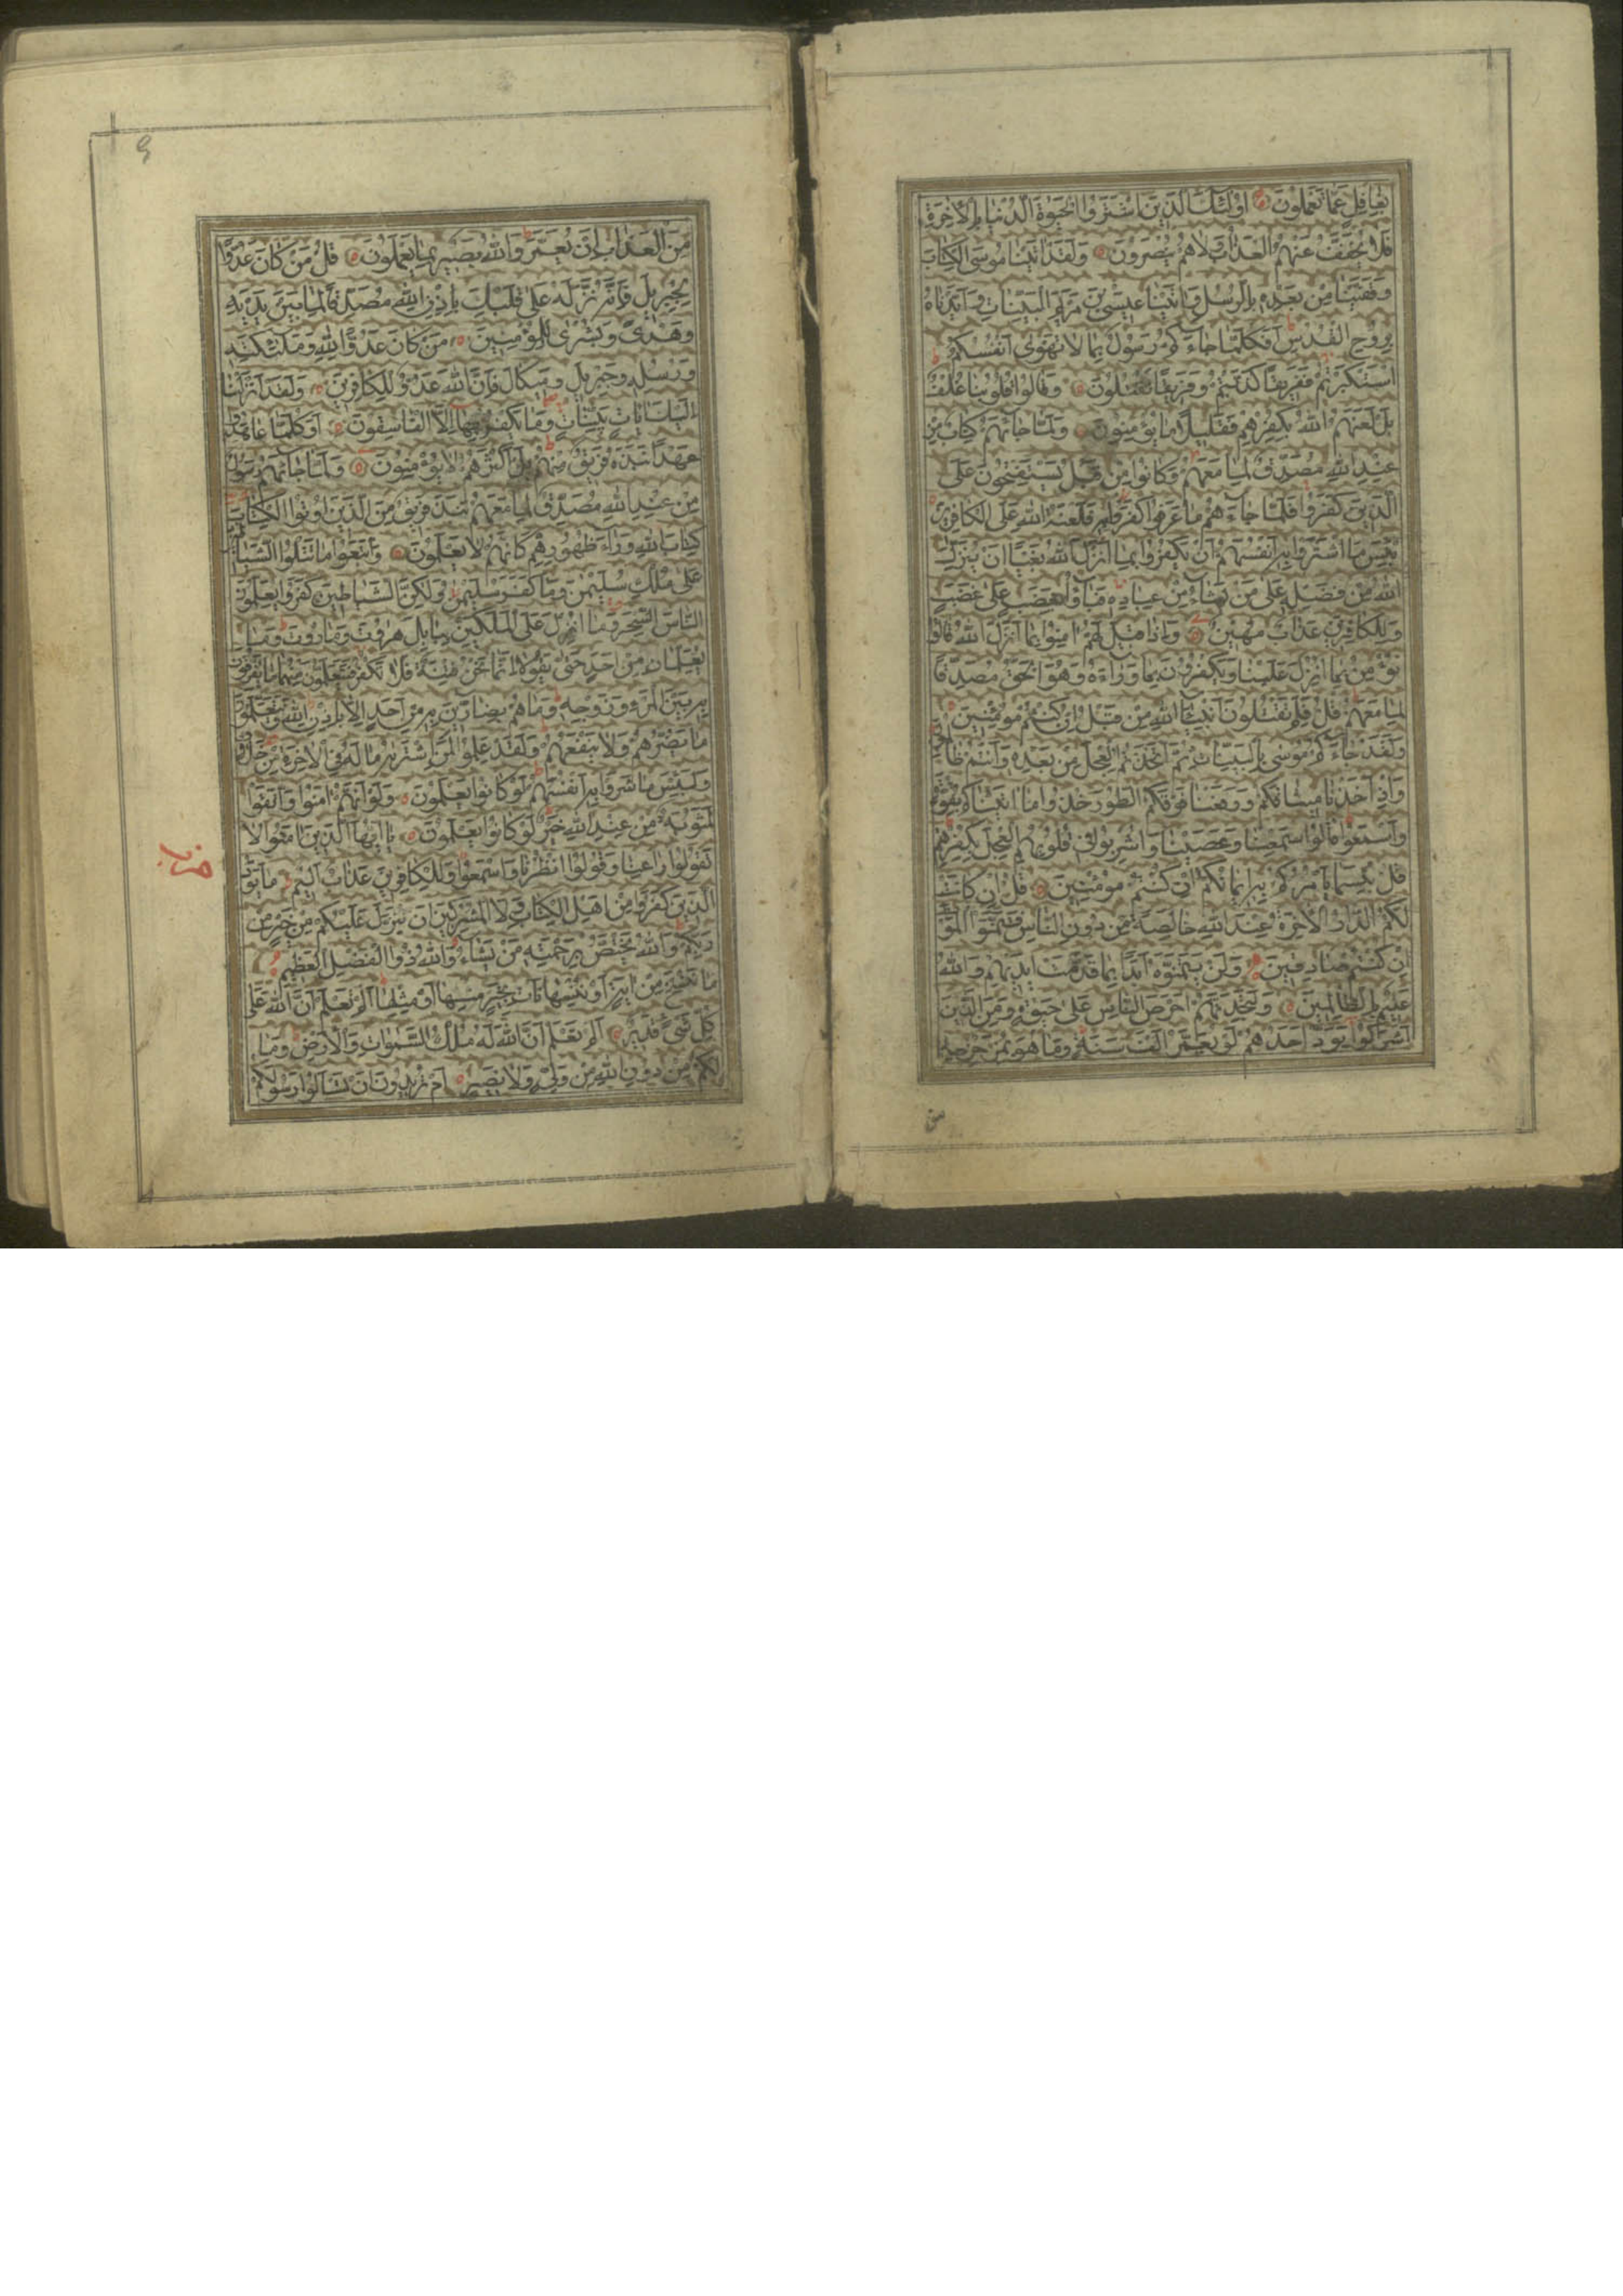 بغافل عما تعملون اولئك الذين اشتروا الحيوة الدنيا بالاخرة
فلا يخفف عنهم العذاب ولا هم ينصرون ولقد اتينا موسى الكتاب
وقفينا من بعده بالرسل واتينا عيسى بن مريم البينات وايدناه
بروح القدس افكلما جاءكم رسول بما لا تهوى انفسكم
استكبرتم ففريقا كذبتم وفريقا تقتلون وقالوا قلوبنا غلف
بل لعنهم الله بكفرهم فقليلا ما يؤمنون ولما جاءهم كتاب من
عند الله مصدق لما معهم وكانوا من قبل يستفتحون على
الذين كفروا فلما جاءهم ما عرفوا كفروا به فلعنة الله على الكافرين
بئس ما اشتروا به انفسهم ان يكفروا بما انزل الله بغيا ان ينزل
الله من فضله على من يشاء من عباده فباؤا بغضب على غضب
وللكافرين عذاب مهين واذا قيل لهم امنوا بما انزل الله قالوا
نؤمن بما انزل علينا ويكفرون بما وراءه وهو الحق مصدقا
لما معهم قل فلم تقتلون انبياء الله من قبل ان كنتم مؤمنين
ولقد جاءكم موسى بالبينات ثم اتخذتم العجل من بعده وانتم ظالمون
واذ اخذنا ميثاقكم ورفعنا فوقكم الطور خذوا ما اتيناكم بقوة
واسمعوا قالوا سمعنا وعصينا واشربوا في قلوبهم العجل بكفرهم
قل بئسما يامركم به ايمانكم ان كنتم مؤمنين قل ان كانت
لكم الدار الاخرة عند الله خالصة من دون الناس فتمنوا الموت
ان كنتم صادقين ولن يتمنوه ابدا بما قدمت ايديهم والله
عليم بالظالمين ولتجدنهم احرص الناس على حيوة ومن الذين
اشركوا يود احدهم لو يعمر الف سنة وما هو بمزحزحه
من
من العذاب ان يعمر والله بصير بما يعملون قل من كان عدوا
لجبريل فانه نزله على قلبك باذن الله مصدقا لما بين يديه
وهدى وبشرى للمؤمنين من كان عدوا لله وملئكته
ورسله وجبريل وميكال فان الله عدو للكافرين ولقد انزلنا
اليك ايات بينات وما يكفر بها الا الفاسقون اوكلما عاهدوا
عهدا نبذه فريق منهم بل اكثرهم لا يؤمنون ولما جاءهم رسول
من عند الله مصدق لما معهم نبذ فريق من الذين اوتوا الكتاب
كتاب الله وراء ظهورهم كانهم لا يعلمون واتبعوا ما تتلوا الشياطين
على ملك سليمن وما كفر سليمن ولكن الشياطين كفروا يعلمون
الناس السحر وما انزل على الملكين ببابل هروت وماروت وما
يعلمان من احد حتى يقولا انما نحن فتنة فلا تكفر فيتعلمون منهما ما يفرقون
به بين المرء وزوجه وما هم بضارين به من احد الا باذن الله ويتعلمون
ما يضرهم ولا ينفعهم ولقد علموا لمن اشتريه ما له في الاخرة من خلاق
ولبئس ما شروا به انفسهم لو كانوا يعلمون ولو انهم امنوا واتقوا
لمثوبة من عند الله خير لو كانوا يعلمون يا ايها الذين امنوا لا
تقولوا راعنا وقولوا انظرنا واسمعوا وللكافرين عذاب اليم ما يود
الذين كفروا من اهل الكتاب ولا المشركين ان ينزل عليكم من خير من
ربكم والله يختص برحمته من يشاء والله ذو الفضل العظيم
ما ننسخ من اية او ننسها نات بخير منها او مثلها الم تعلم ان الله على
كل شيء قدير الم تعلم ان الله له ملك السموات والارض وما
لكم من دون الله من ولي ولا نصير ام تريدون ان تسالوا رسولكم
حزب